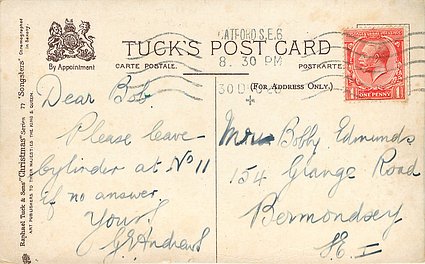 TUCK'S POST CARD
By Appointment
CARTE POSTALE.
POSTKARTE.
(FOR ADDRESS ONLY.)
CATFORD S.E.6
8. 30 PM
30 D
ONE PENNY
Raphael Tuck & Sons' "Christmas" Series 77 "Songsters"
ART PUBLISHERS TO THEIR MAJESTIES THE KING & QUEEN.
Dear Bob.
Please leave
cylinder at No 11
if no answer
Yours
G Andrews
Bobby Edmunds
154 Grange Road
Bermondsey
S.E. 1